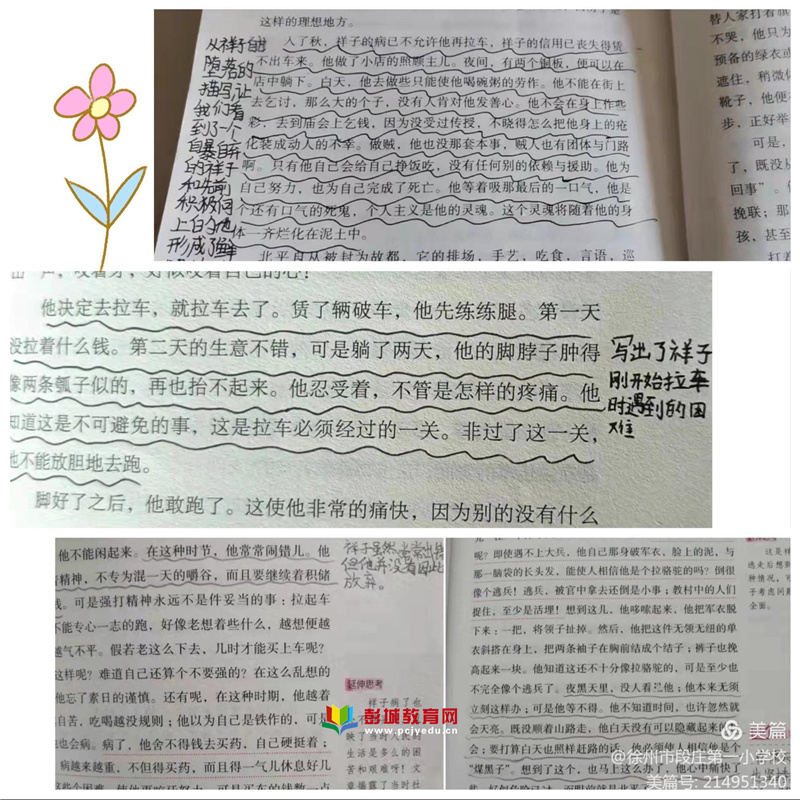 这样的理想地方。
入了秋，祥子的病已不允许他再拉车，祥子的信用已丧失得赁
不出车来。他做了小店的照顾主儿。夜间，有两个铜板，便可以在
店中躺下。白天，他去做些只能使他喝碗粥的劳作。他不能在街上
去乞讨，那么大的个子，没有人肯对他发善心。他不会在身上作些
彩，去到庙会上乞钱，因为没受过传授，不晓得怎么把他身上的疮
化装成动人的不幸。做贼，他也没那套本事，贼人也有团体与门路
啊。只有他自己会给自己挣饭吃，没有任何别的依赖与援助。他为
自己努力，也为自己完成了死亡。他等着吸那最后的一口气，他是
个还有口气的死鬼，个人主义是他的灵魂。这个灵魂将随着他的身
体一齐烂化在泥土中。
北平自从被封为故都，它的排场，手艺，吃食，言语，巡
从祥子自甘
堕落的
描写让
我们看
到了一个
自暴自弃
的祥子
和先前
积极向
上的他
形成了鲜
替人家打着
不哭，他只为
预备的绿衣或
遮住，稍微体
靴子，他便
步，正好半
可是，
了，既没从
回事”。他
挽联；那
孩，甚至
打着
他决定去拉车，就拉车去了。赁了辆破车，他先练练腿。第一天
没拉着什么钱。第二天的生意不错，可是躺了两天，他的脚脖子肿得
像两条瓠子似的，再也抬不起来。他忍受着，不管是怎样的疼痛。他
知道这是不可避免的事，这是拉车必须经过的一关。非过了这一关，
他不能放胆地去跑。
脚好了之后，他敢跑了。这使他非常的痛快，因为别的没有什么
写出了祥子
刚开始拉车
时遇到的困
难
他不能闲起来。在这种时节，他常常闹错儿。他
精神，不专为混一天的嚼谷，而且要继续着积储
钱。可是强打精神永远不是件妥当的事：拉起车
不能专心一志的跑，好像老想着些什么，越想便越
越气不平。假若老这么下去，几时才能买上车呢？
这样呢？难道自己还算个不要强的？在这么乱想的
他忘了素日的谨慎。还有呢，在这种时期，他越着
自苦，吃喝越没规则；他以为自己是铁作的，可是
也会病。病了，他舍不得钱去买药，自己硬挺着；
病越来越重，不但得买药，而且得一气儿休息好几
祥子虽然常常出错
但他并没有因此
放弃。
延伸思考
祥子病了也
映了当时人民的
生活是多么的困
苦和艰难呀！文
章揭露了当时社
呢？即使遇不上大兵，他自己那身破军衣，脸上的泥，与
那一脑袋的长头发，能使人相信他是个拉骆驼的吗？倒很
像个逃兵！逃兵，被官中拿去还倒是小事；教村中的人们
捉住，至少是活埋！想到这儿，他哆嗦起来，他把军衣脱
下来：一把，将领子扯掉。然后，他把这件无领无纽的单
衣斜搭在身上，把两条袖子在胸前结成个结子；裤子也挽
高起来一块。他知道这还不十分像拉骆驼的，可是至少也
不完全像个逃兵了。夜黑天里，没人看见他；他本来无须
立刻这样办；可是他等不得。他不知道时间，也许忽然就
会天亮。既没顺着山路走，他白天没有可以隐藏起来的
会；要打算白天也照样赶路的话，他必须使人相信他是个
“煤黑子”。想到了这个，也马上这么办了，他心中痛快了
延伸思考
这是祥
逃走后想到
种情况，可
子考虑问题
全面。
彭城教育网
www.pcjyedu.cn
美篇
@徐州市段庄第一小学校
美篇号: 214951340